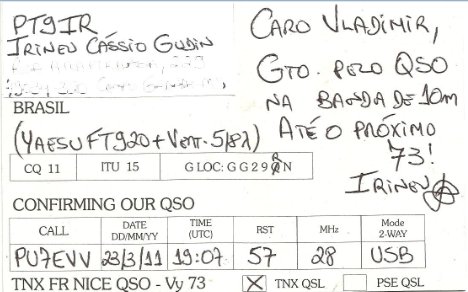 PT9IR
IRINEU CÁSSIO GUDIN
BRASIL
(YAESU FT920 + VERT. 5/8λ)
CQ 11 ITU 15 GLOC: GG29RN
CARO VLADIMIR,
GTO. PELO QSO
NA BANDA DE 10m
ATÉ O PRÓXIMO
73!
IRINEU
CONFIRMING OUR QSO
CALL DATE DD/MM/YY TIME (UTC) RST MHz Mode 2-WAY
PU7EVV 23/3/11 19:07 57 28 USB
TNX FR NICE QSO - Vy 73 X TNX QSL PSE QSL